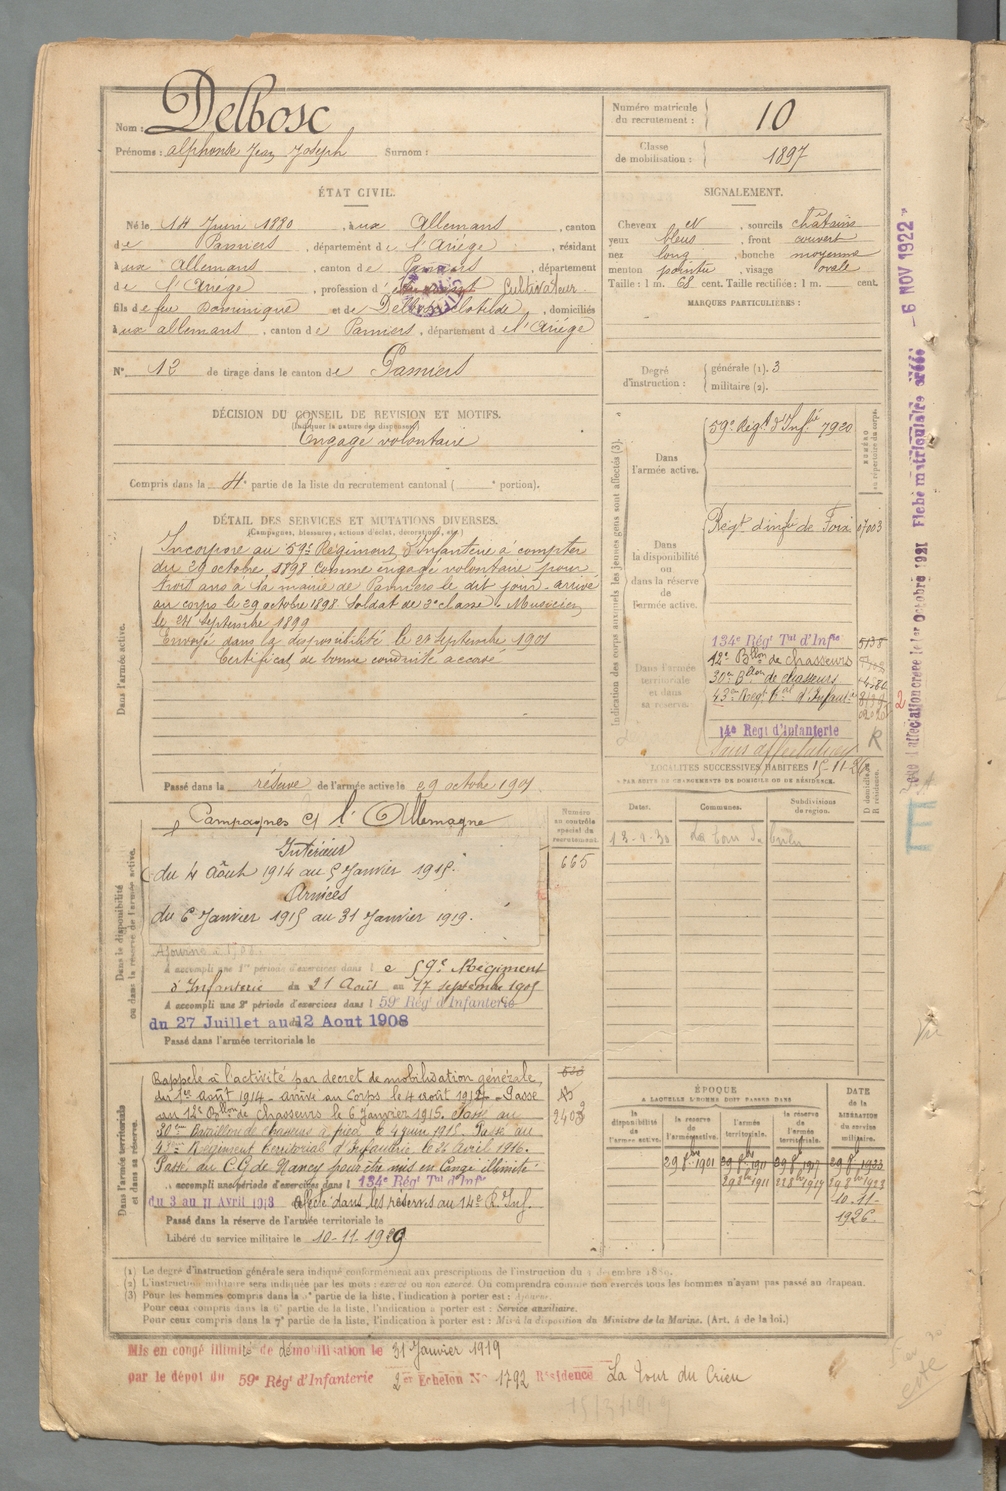 Nom : Delbosc
Prénoms : alphonse Jean Joseph Surnom :
Numéro matricule du recrutement : 10
Classe de mobilisation : 1897
ÉTAT CIVIL.
Né le 14 Juin 1880 , à ux Allemans , canton
de Pamiers , département de l'Ariège , résidant
à ux Allemans , canton de Pamiers , département
de l'Ariège , profession d Cultivateur
fils de feu Dominique et de Clotilde , domiciliés
à ux allemans , canton de Pamiers , département de l'Ariège
N° 12 de tirage dans le canton de Pamiers
SIGNALEMENT.
Cheveux et , sourcils châtains
yeux bleus , front couvert
nez long , bouche moyenne
menton pointu , visage ovale
Taille : 1 m. 68 cent. Taille rectifiée : 1 m. cent.
MARQUES PARTICULIÈRES :
Degré d'instruction : générale (1). 3
militaire (2).
DÉCISION DU CONSEIL DE REVISION ET MOTIFS.
(Indiquer la nature des dispenses)
Engagé volontaire
Compris dans la 4e partie de la liste du recrutement cantonal ( e portion).
DÉTAIL DES SERVICES ET MUTATIONS DIVERSES.
(Campagnes, blessures, actions d'éclat, décorations, etc.)
Dans l'armée active.
Incorporé au 59e Régiment d'Infanterie à compter
du 29 octobre 1898 Comme engagé volontaire pour
trois ans à la mairie de Pamiers le dit jour - arrivé
au corps le 29 octobre 1898 Soldat de 2e classe. Musicien
le 24 Septembre 1899
Envoyé dans la disponibilité le 27 Septembre 1901
Certificat de bonne conduite accordé
Passé dans la réserve de l'armée active le 29 octobre 1901
Indication des corps auxquels les jeunes gens sont affectés (3).
NUMÉRO au répertoire du corps.
Dans l'armée active.
59e Régt d'Infie 7920
Dans la disponibilité ou dans la réserve de l'armée active.
Régt d'infie de Foix 07003
Dans l'armée territoriale et dans sa réserve.
134e Régt Tal d'Infie 5738
12e Bllon de chasseurs
30e Bllon de chasseurs
43e Régt tal d'Infant
14e Régt d'Infanterie
Sans affectation
R
LOCALITÉS SUCCESSIVES HABITÉES
PAR SUITE DE CHANGEMENTS DE DOMICILE OU DE RÉSIDENCE.
Dates. Communes. Subdivisions de région. D domicile R résidence.
13-1-30 La tour du
Dans la disponibilité ou dans la réserve de l'armée active.
Numéro au contrôle spécial du recrutement.
665
Campagnes Ct l'Allemagne
Intérieur
du 4 Août 1914 au 5 Janvier 1915.
Armées
du 6 Janvier 1915 au 31 Janvier 1919.
A accompli une 1re période d'exercices dans le 59e Régiment
d'Infanterie du 21 Août au 17 septembre 1905
A accompli une 2e période d'exercices dans l 59e Régt d'Infanterie
du 27 Juillet au 12 Aout 1908
Passé dans l'armée territoriale le
Dans l'armée territoriale et dans sa réserve.
Rappelé à l'activité par decret de mobilisation générale,
du 1er août 1914 - arrivé au Corps le 4 août 1914 - Passé
au 12e Bllon de chasseurs le 6 Janvier 1915. Passé au
30e Bataillon de chasseurs à pied le 4 juin 1915. Passé au
43e Régiment territorial d'Infanterie le Avril 1916.
Passé au C.G. de Nancy pour être mis en Congé illimité
accompli une période d'exercices dans l 134e Régt Tal d'Infie
du 3 au 11 Avril 1913 Affecté dans les réserves au 14e R. Inf.
Passé dans la réserve de l'armée territoriale le
Libéré du service militaire le 10-11-1929
ÉPOQUE
A LAQUELLE L'HOMME DOIT PASSER DANS
la disponibilité de l'armée active. la réserve de l'armée active. l'armée territoriale. la réserve de l'armée territoriale.
DATE de la LIBÉRATION du service militaire.
29 8bre 1901 29 8bre 1911 29 8bre 1917 29 8bre 1923
10-11-1926.
(1) Le degré d'instruction générale sera indiqué conformément aux prescriptions de l'instruction du 4 décembre 1889.
(2) L'instruction militaire sera indiquée par les mots : exercé ou non exercé. On comprendra comme non exercés tous les hommes n'ayant pas passé au drapeau.
(3) Pour les hommes compris dans la partie de la liste, l'indication à porter est : Ajourné.
Pour ceux compris dans la 6e partie de la liste, l'indication à porter est : Service auxiliaire.
Pour ceux compris dans la 7e partie de la liste, l'indication à porter est : Mis à la disposition du Ministre de la Marine. (Art. 4 de la loi.)
Mis en congé illimité de démobilisation le 31 Janvier 1919
par le dépôt du 59e Régt d'Infanterie 2e Echelon N° 1792 Résidence La Tour du Crieu
Fiche matriculaire créée - 6 NOV 1922